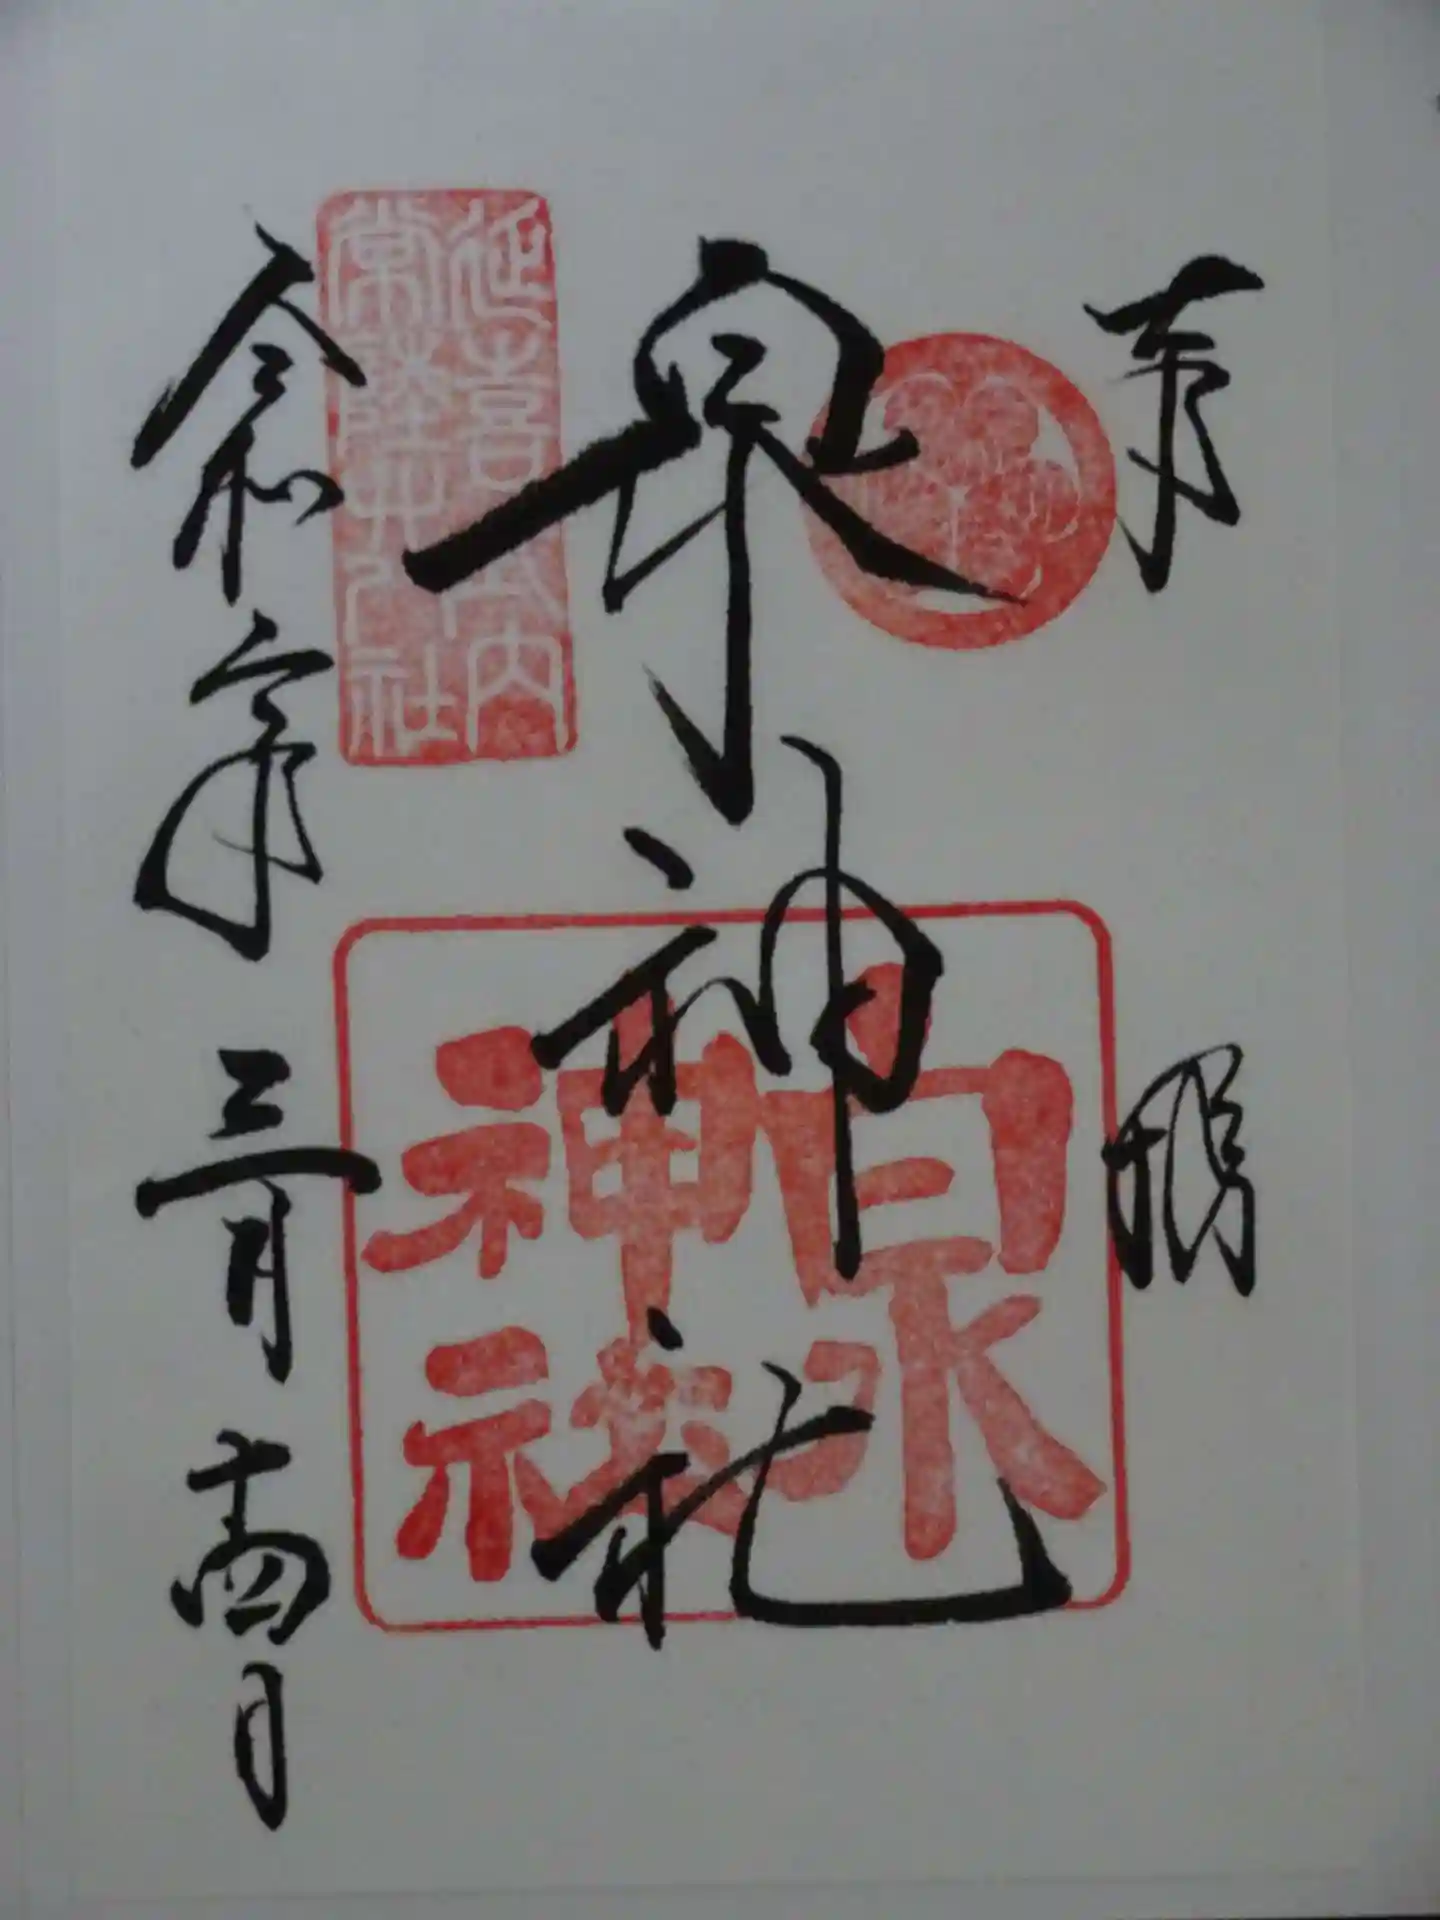 奉
拝
泉神社
泉神社
延喜式内
常陸廿八社
令和六年三月十四日